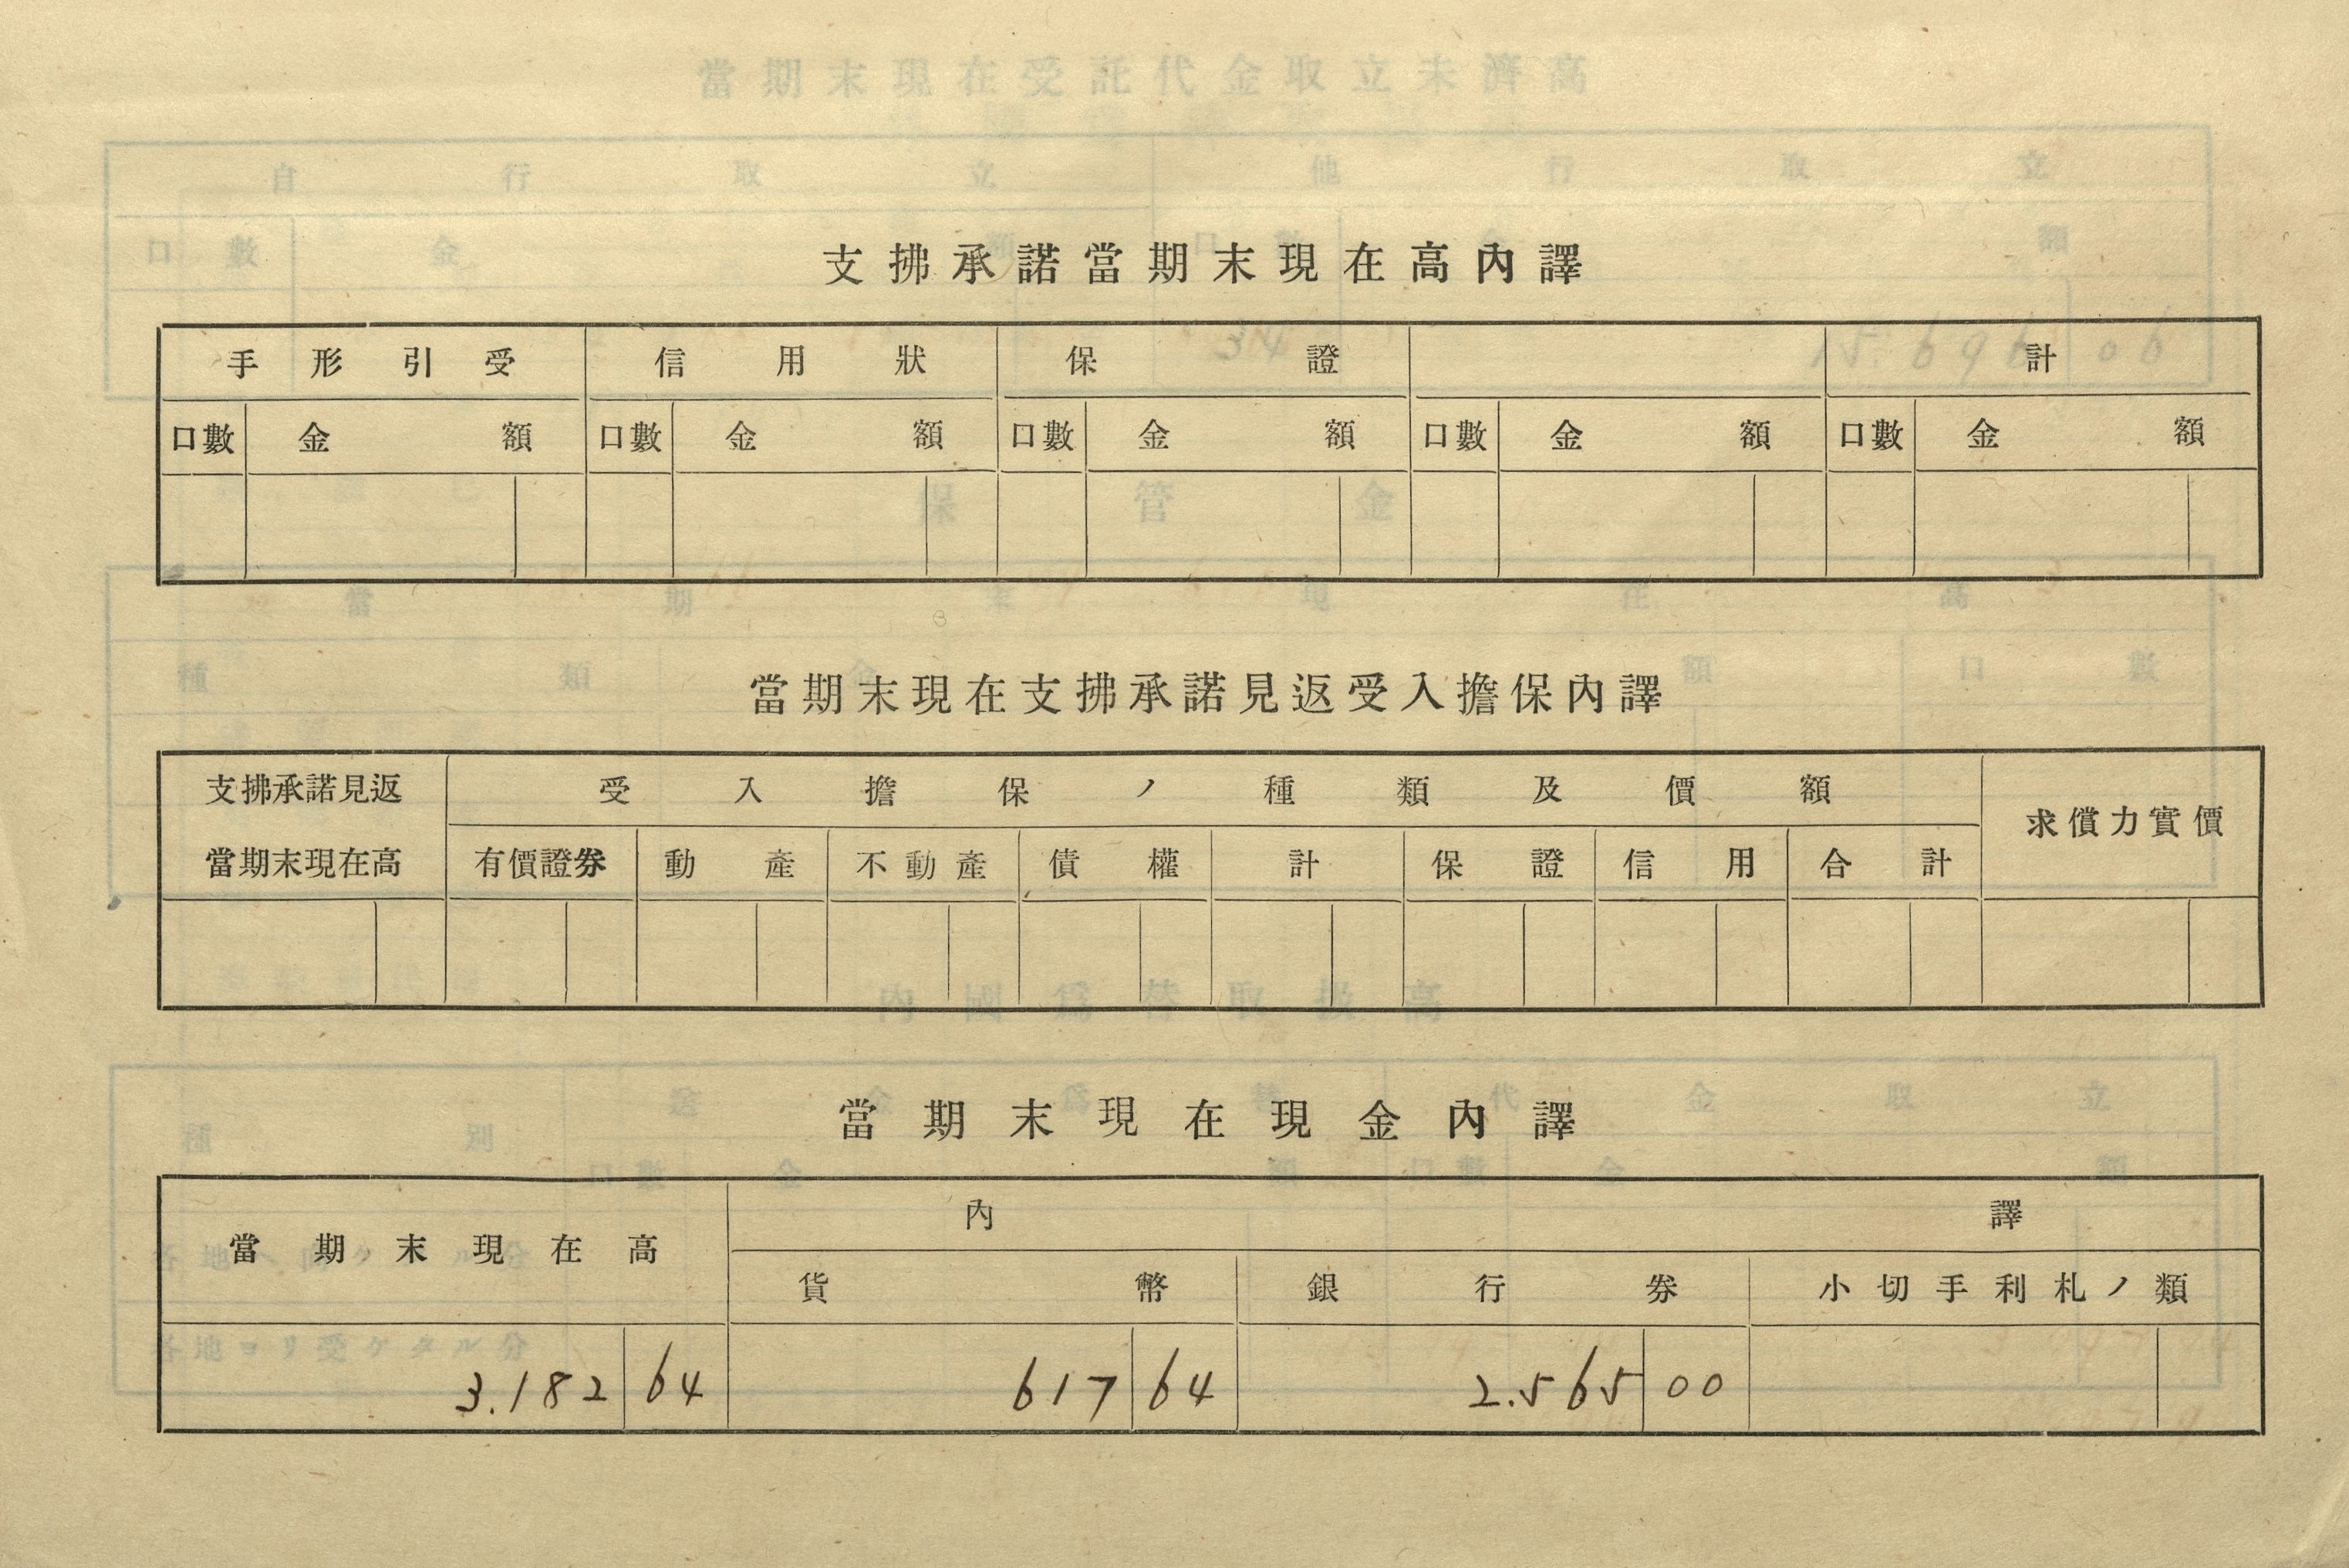 支拂承諾當期末現在高內譯
手形引受 信用狀 保證 計
口數 金額 口數 金額 口數 金額 口數 金額 口數 金額
當期末現在支拂承諾見返受入擔保內譯
支拂承諾見返 受入擔保ノ種類及價額 求償力實價
當期末現在高 有價證券 動產 不動產 債權 計 保證 信用 合計
當期末現在現金內譯
當期末現在高 內譯
貨幣 銀行券 小切手利札ノ類
3.182 64 617 64 2.565 00